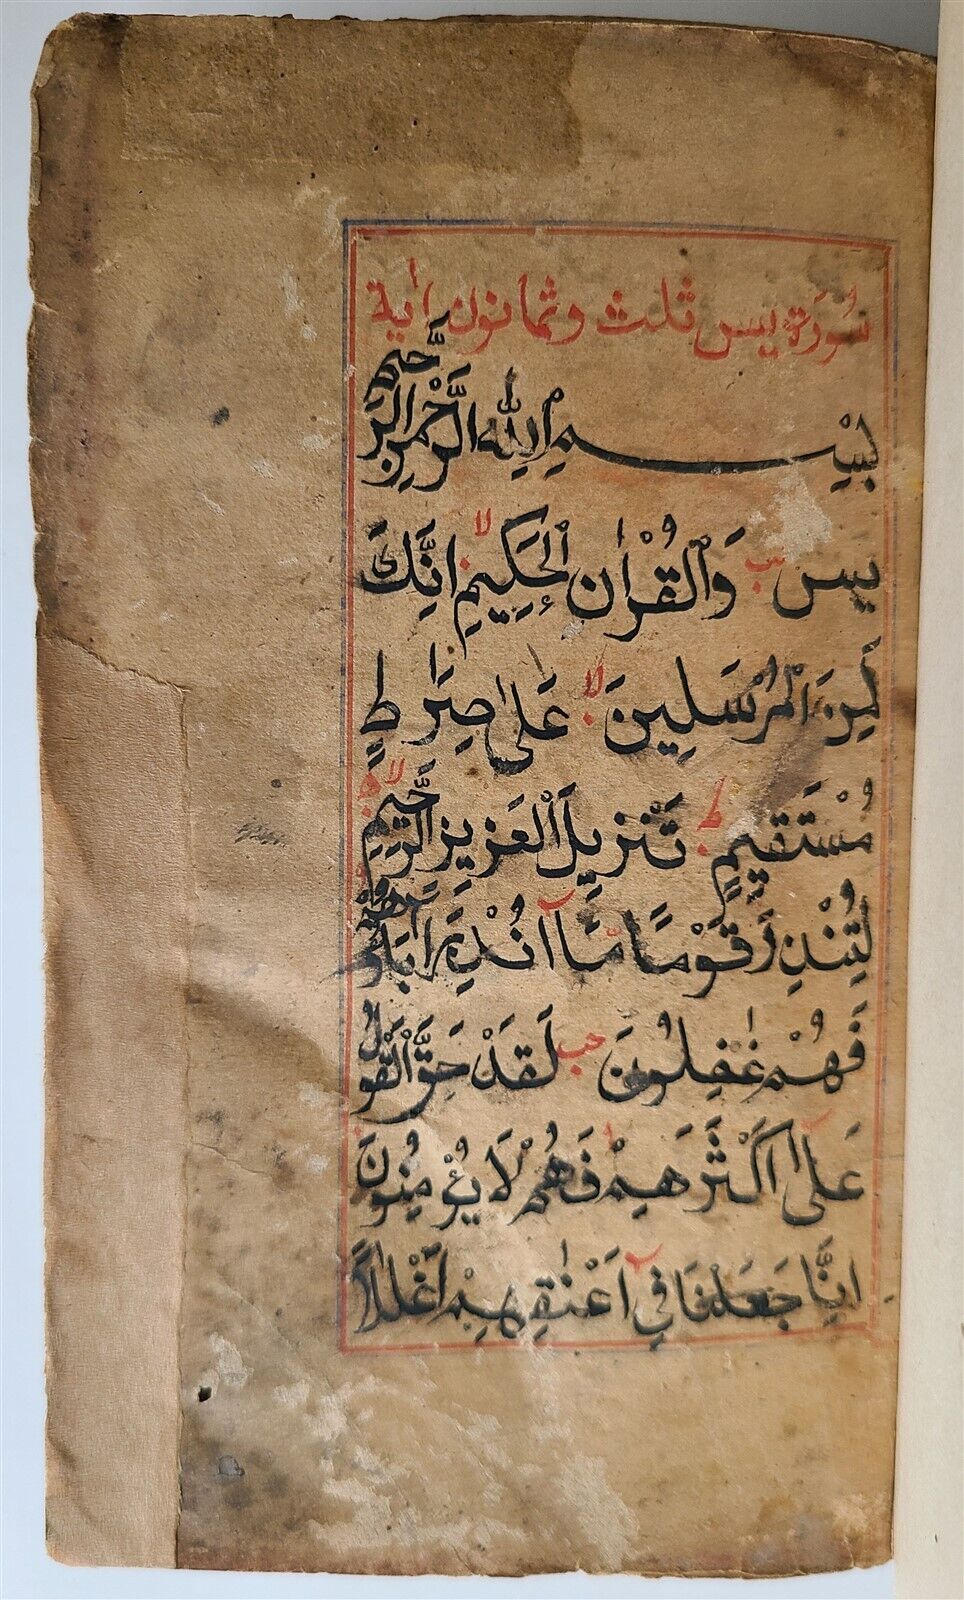 سُورَة يس ثلث وثمانون اٰية
بِسْــــمِ اللّٰهِ الرَّحْمٰنِ الرَّحِيمِ
يس وَالْقُرْاٰنِ الْحَكِيمِ لا اِنَّكَ
لَمِنَ الْمُرْسَلِينَ لا عَلىٰ صِرَاطٍ
مُسْتَقِيمٍ ط تَنْزِيلَ الْعَزِيزِ الرَّحِيمِ لا
لِتُنْذِرَ قَوْمًا مَّآ اُنْذِرَ اٰبَاؤُهُمْ
فَهُمْ غٰفِلُونَ لَقَدْ حَقَّ الْقَوْلُ
عَلىٰ اَكْثَرِهِمْ فَهُمْ لَا يُؤْمِنُونَ
اِنَّا جَعَلْنَا فِي اَعْنٰقِهِمْ اَغْلٰلًا